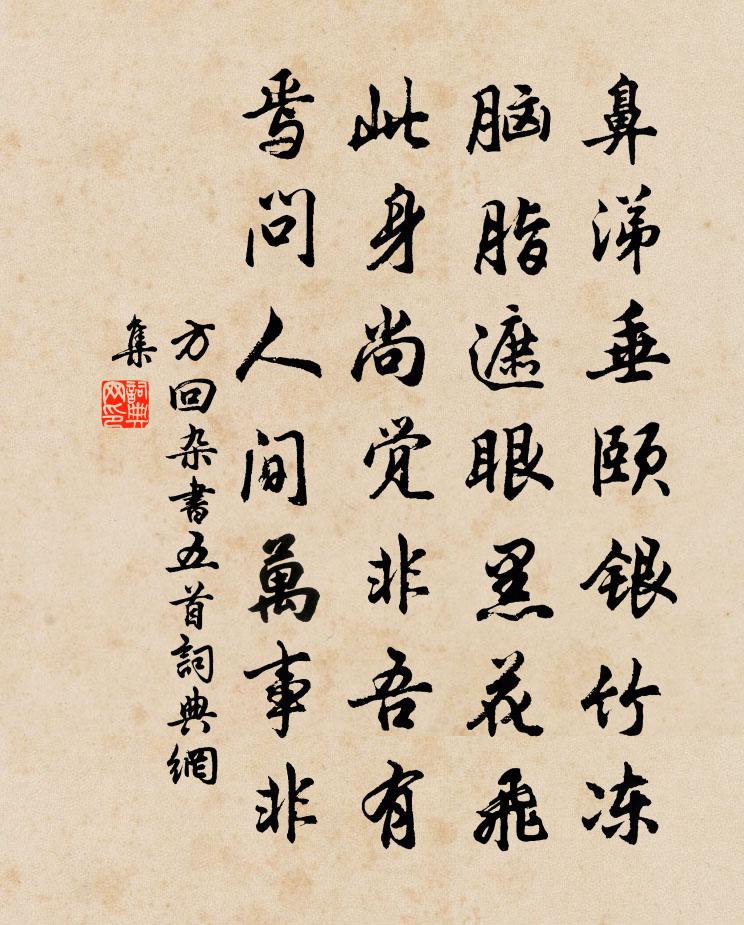 鼻涕垂颐银竹冻
脑脂遮眼黑花飞
此身尚觉非吾有
焉问人间萬事非
方回杂書五首詞典網
集
詞典
网印